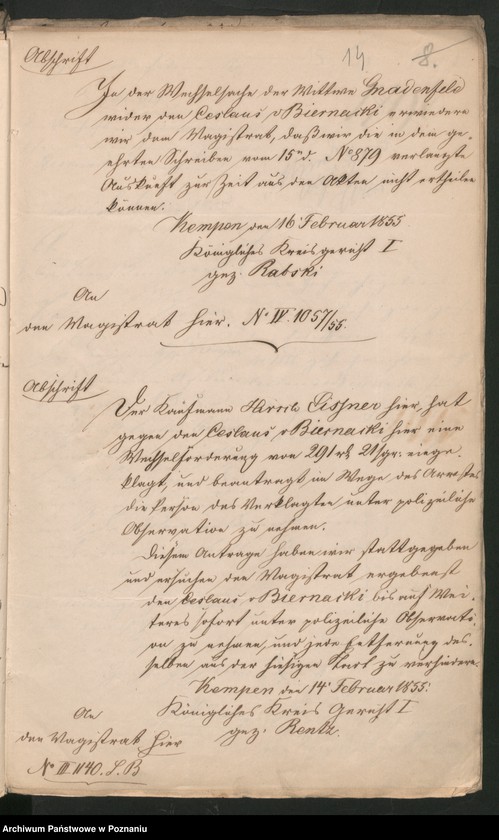 14 8.
Abschrift
In der Wechselsache der Wittwe Gnadenfeld
wider den Ceslaus v Biernacki erwiedern
wir dem Magistrat, daß wir die in dem ge-
ehrten Schreiben vom 15ten d. No 879 verlangte
Auskunft zur Zeit aus den Akten nicht ertheilen
können.
Kempen den 16 Februar 1855
Königliches Kreisgericht I
gez. Rabski
An
den Magistrat hier. No IV. 1057/55.
Abschrift
Der Kaufmann Hirsch Eissner hier, hat
gegen den Ceslaus v Biernacki hier eine
Wechselforderung von 291 rt 21 sgr: einge-
klagt, und beantragt im Wege des Arrestes
die Person des Verklagten unter polizeiliche
Observation zu nehmen.
Diesem Antrage haben wir stattgegeben
und ersuchen den Magistrat ergebenst
den Ceslaus v Biernacki bis auf Wei-
teres sofort unter polizeiliche Observati-
on zu nehmen, und jede Entfernung des-
selben aus der hiesigen Stadt zu verhindern.
Kempen den 14 Februar 1855.
Königliches Kreis Gericht I
An
gez. Rentz.
den Magistrat hier
No III 1140. S. B
Archiwum Państwowe w Poznaniu